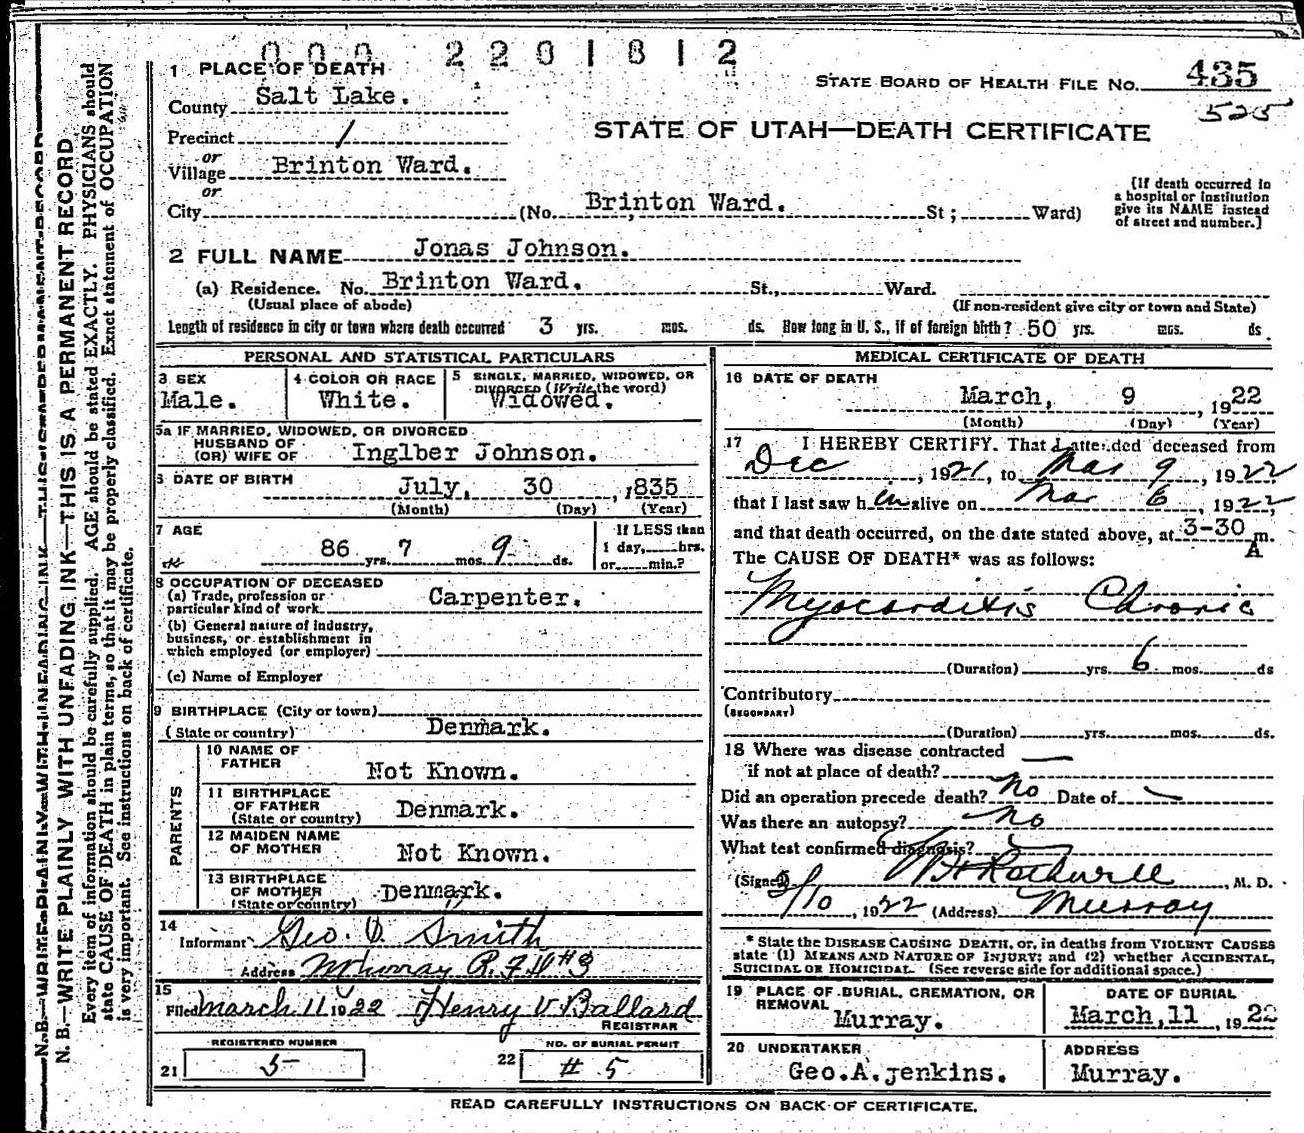 000 2201812
1 PLACE OF DEATH
STATE BOARD OF HEALTH FILE NO. 435
County Salt Lake.
525
Precinct 1
STATE OF UTAH—DEATH CERTIFICATE
or
Village Brinton Ward.
or
City (No. Brinton Ward. St; Ward)
[If death occurred in
a hospital or institution
give its NAME instead
of street and number.]
2 FULL NAME Jonas Johnson.
(a) Residence. No. Brinton Ward. St., Ward.
(Usual place of abode) (If non-resident give city or town and State)
Length of residence in city or town where death occurred 3 yrs. mos. ds. How long in U. S., if of foreign birth? 50 yrs. mos. ds
PERSONAL AND STATISTICAL PARTICULARS
3 SEX
Male.
4 COLOR OR RACE
White.
5 SINGLE, MARRIED, WIDOWED, OR
DIVORCED (Write the word)
Widowed.
5a IF MARRIED, WIDOWED, OR DIVORCED
HUSBAND OF
(OR) WIFE OF Inglber Johnson.
6 DATE OF BIRTH July, 30, 1835
(Month) (Day) (Year)
7 AGE
86 yrs. 7 mos. 9 ds.
If LESS than
1 day, hrs.
or min.?
8 OCCUPATION OF DECEASED
(a) Trade, profession or
particular kind of work Carpenter.
(b) General nature of industry,
business, or establishment in
which employed (or employer)
(c) Name of Employer
9 BIRTHPLACE (City or town)
(State or country) Denmark.
PARENTS
10 NAME OF
FATHER Not Known.
11 BIRTHPLACE
OF FATHER
(State or country) Denmark.
12 MAIDEN NAME
OF MOTHER Not Known.
13 BIRTHPLACE
OF MOTHER
(State or country) Denmark.
14
Informant Geo. D. Smith
Address Murray R.F.D #3
15
Filed March 11 1922 Henry V Ballard
REGISTRAR
REGISTERED NUMBER
21 5
NO. OF BURIAL PERMIT
22 # 5
MEDICAL CERTIFICATE OF DEATH
16 DATE OF DEATH
March, 9, 1922
(Month) (Day) (Year)
17 I HEREBY CERTIFY. That I attended deceased from
Dec, 1921, to Mar 9, 1922
that I last saw him alive on Mar 6, 1922,
and that death occurred, on the date stated above, at 3-30 m.
A
The CAUSE OF DEATH* was as follows:
Myocarditis Chronic
(Duration) yrs. 6 mos. ds
Contributory
(SECONDARY)
(Duration) yrs. mos. ds.
18 Where was disease contracted
if not at place of death?
Did an operation precede death? No Date of
Was there an autopsy? No
What test confirmed diagnosis?
(Signed) W H Rothwell, M. D.
3/10, 1922 (Address) Murray
* State the DISEASE CAUSING DEATH, or, in deaths from VIOLENT CAUSES
state (1) MEANS AND NATURE OF INJURY; and (2) whether ACCIDENTAL,
SUICIDAL OR HOMICIDAL. (See reverse side for additional space.)
19 PLACE OF BURIAL, CREMATION, OR
REMOVAL Murray.
DATE OF BURIAL
March, 11, 1922
20 UNDERTAKER
Geo.A.jenkins.
ADDRESS
Murray.
READ CAREFULLY INSTRUCTIONS ON BACK OF CERTIFICATE.
N. B.—WRITE PLAINLY WITH UNFADING INK—THIS IS A PERMANENT RECORD
Every item of information should be carefully supplied. AGE should be stated EXACTLY. PHYSICIANS should
state CAUSE OF DEATH in plain terms, so that it may be properly classified. Exact statement of OCCUPATION
is very important. See instructions on back of certificate.